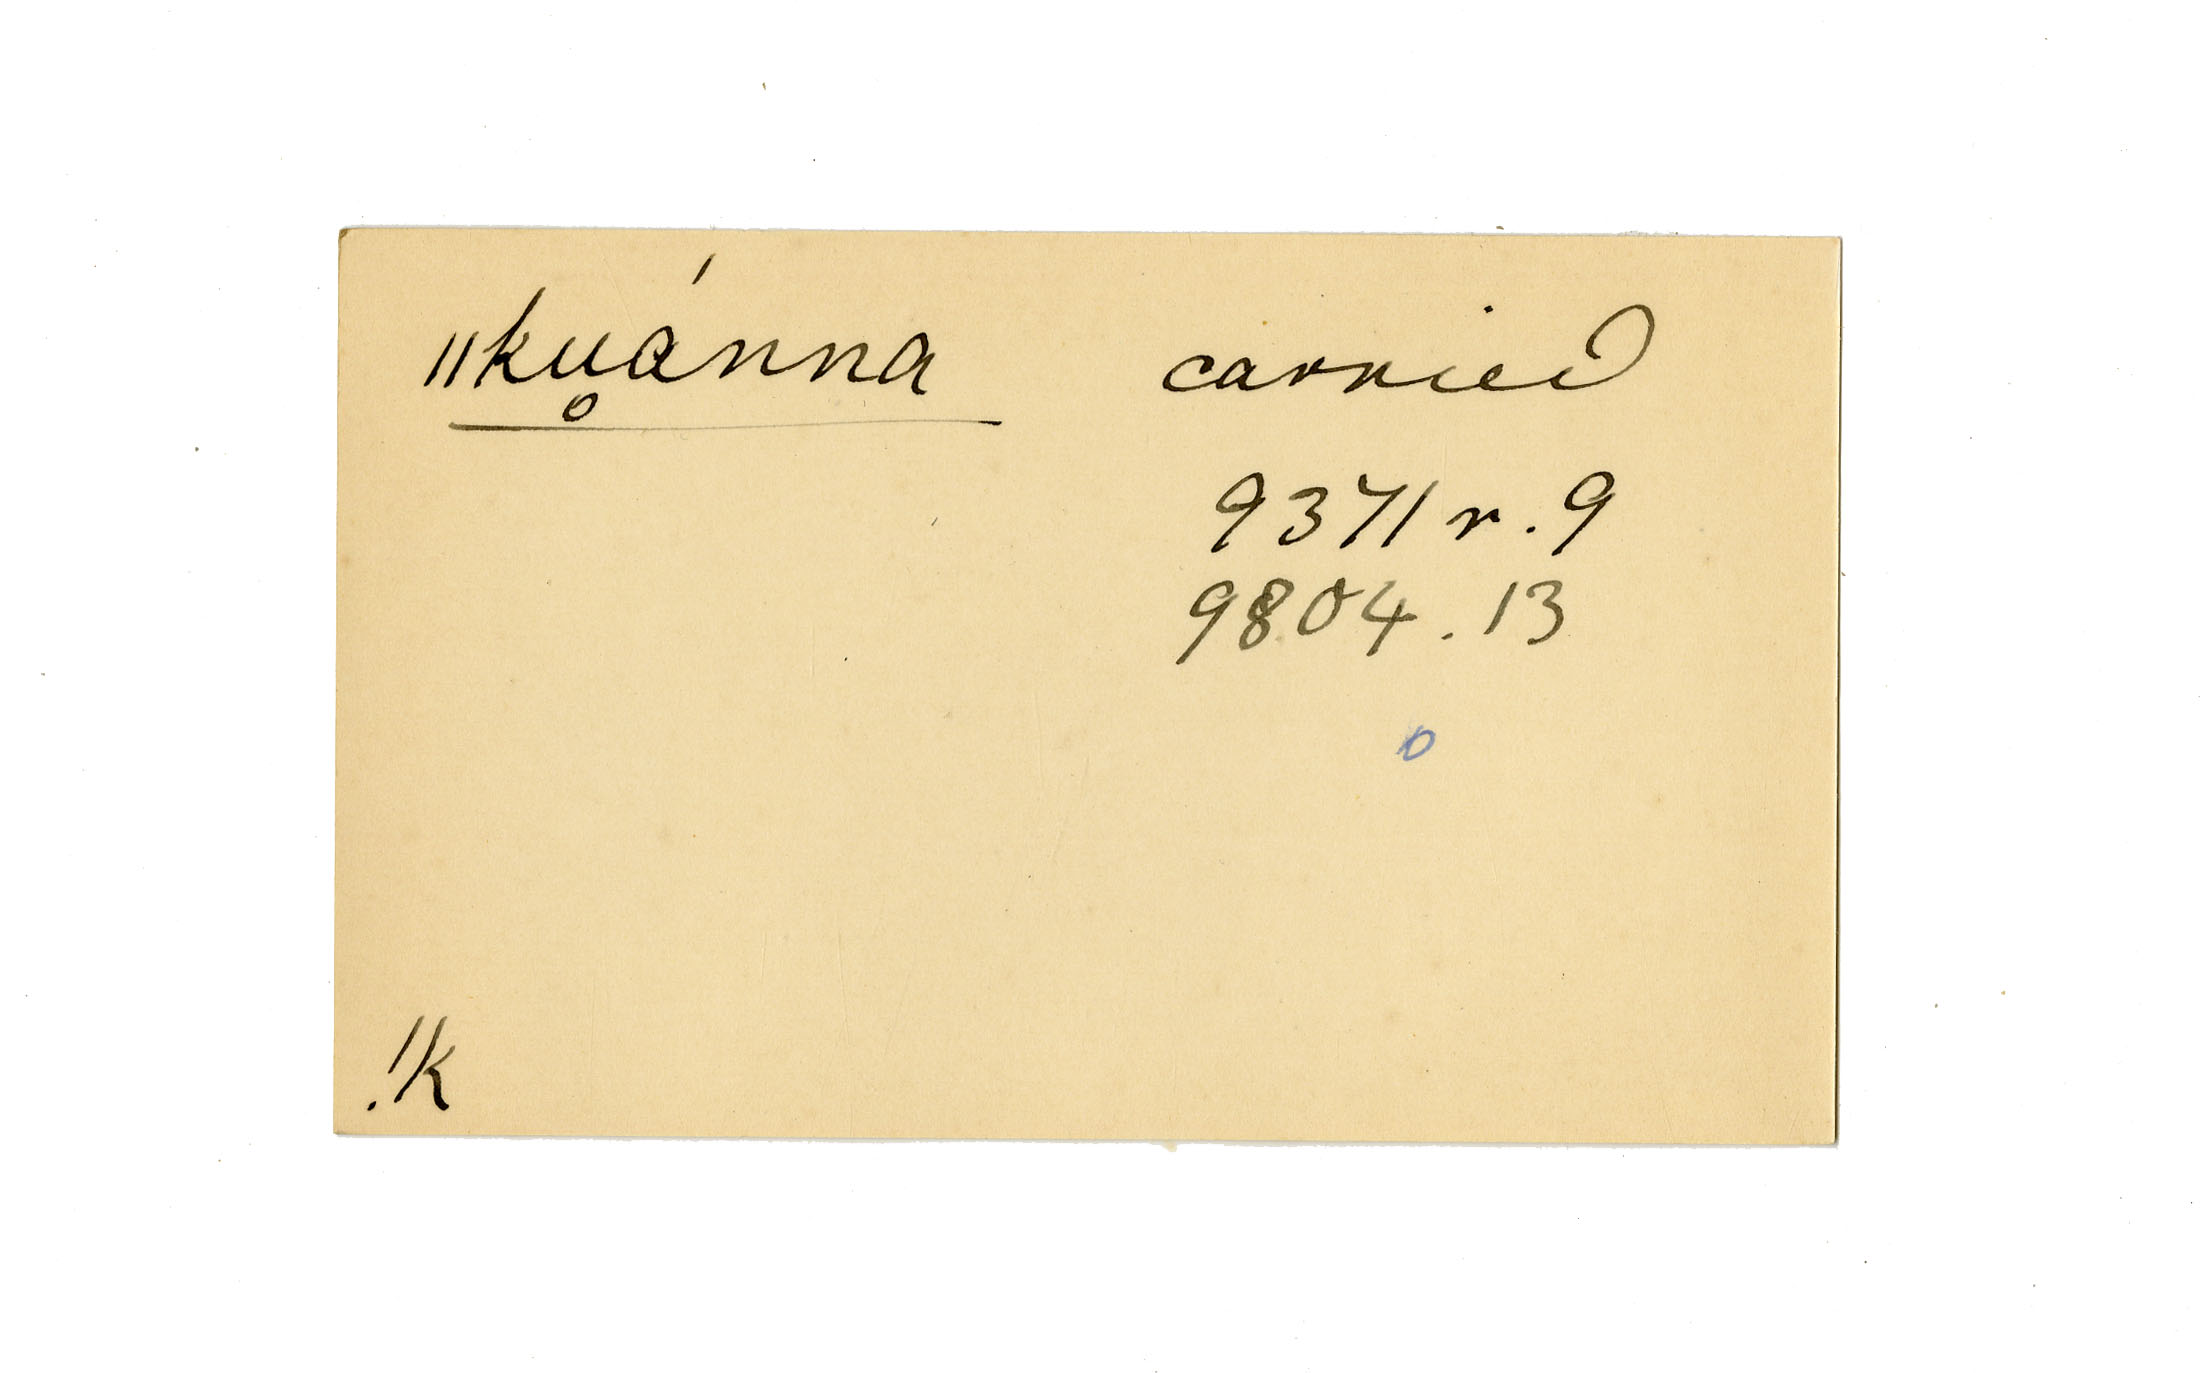 ǁku̥ánna carried
9371 r. 9
9804. 13
o
!k